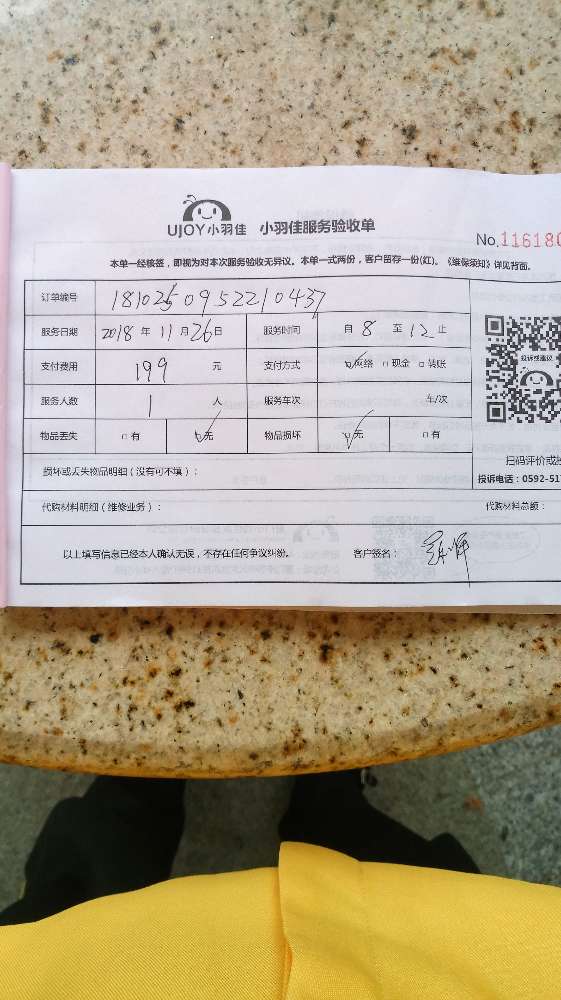 UJOY小羽佳 小羽佳服务验收单
No.116180
本单一经核签，即视为对本次服务验收无异议。本单一式两份，客户留存一份(红)。《维保须知》详见背面。
订单编号 1810250952210437
服务日期 2018年11月26日 服务时间 自8至12止
支付费用 199元 支付方式 ☑网络 □现金 □转账
服务人数 1人 服务车次 车/次
物品丢失 □有 ☑无 物品损坏 ☑无 □有
投诉或建议
扫码评价或投
投诉电话：0592-517
损坏或丢失物品明细（没有可不填）：
代购材料明细（维修业务）： 代购材料总额：
以上填写信息已经本人确认无误，不存在任何争议纠纷。 客户签名：